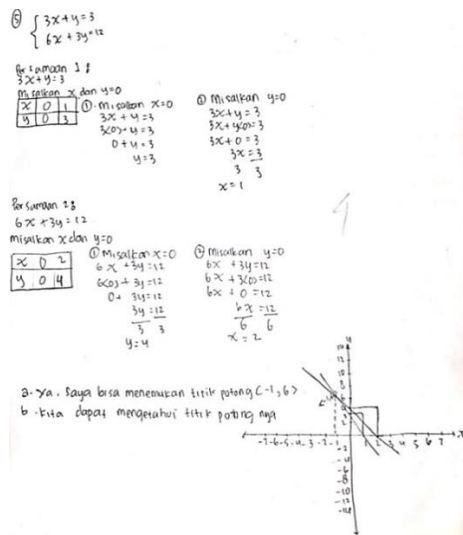 ⑤ { 3x + y = 3
6x + 3y = 12
Persamaan 1 :
3x + y = 3
Misalkan x dan y = 0
x 0 1
y 0 3
① Misalkan x = 0
3x + y = 3
3(0) + y = 3
0 + y = 3
y = 3
② Misalkan y = 0
3x + y = 3
3x + y(0) = 3
3x + 0 = 3
3x = 3
3 3
x = 1
Persamaan 2 :
6x + 3y = 12
misalkan x dan y = 0
x 0 2
y 0 4
① Misalkan x = 0
6x + 3y = 12
6(0) + 3y = 12
0 + 3y = 12
3y = 12
3 3
y = 4
② Misalkan y = 0
6x + 3y = 12
6x + 3(0) = 12
6x + 0 = 12
6x = 12
6 6
x = 2
a. Ya. Saya bisa menemukan titik potong (-1, 6)
b. Kita dapat mengetahui titik potong nya
-7 -6 -5 -4 -3 -2 -1 1 2 3 4 5 6 7